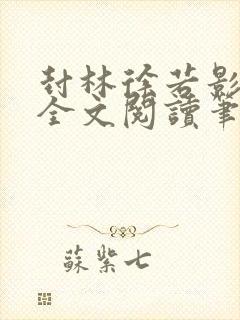 封林徐若影
全文閱讀筆
蘇紫七